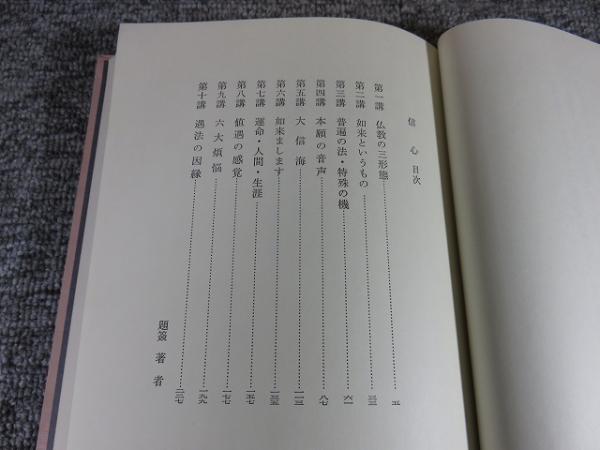 信心 目次
第一講 仏教の三形態 五
第二講 如来というもの 三三
第三講 普遍の法・特殊の機 六一
第四講 本願の音声 八七
第五講 大信海 一一三
第六講 如来まします 一三五
第七講 運命・人間・生涯 一五七
第八講 値遇の感覚 一七七
第九講 六大煩悩 一九九
第十講 遇法の因縁 二三七
題簽 著者